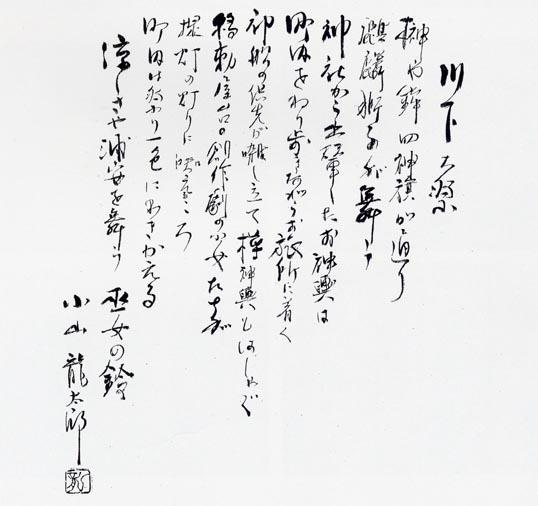 川下大祭
榊や鉾四神旗が通り
麒麟獅子が舞う
神社から出発したお神輿は
町内をねり歩きながらお旅所に着く
神船の保先が囃し立て 樽神輿とはしゃぐ
移動屋台の創作劇の少女たちが
提灯の灯りに映るころ
町内は祭り一色にわきかえる
涼しさや浦安を舞う 巫女の鈴
小山龍太郎